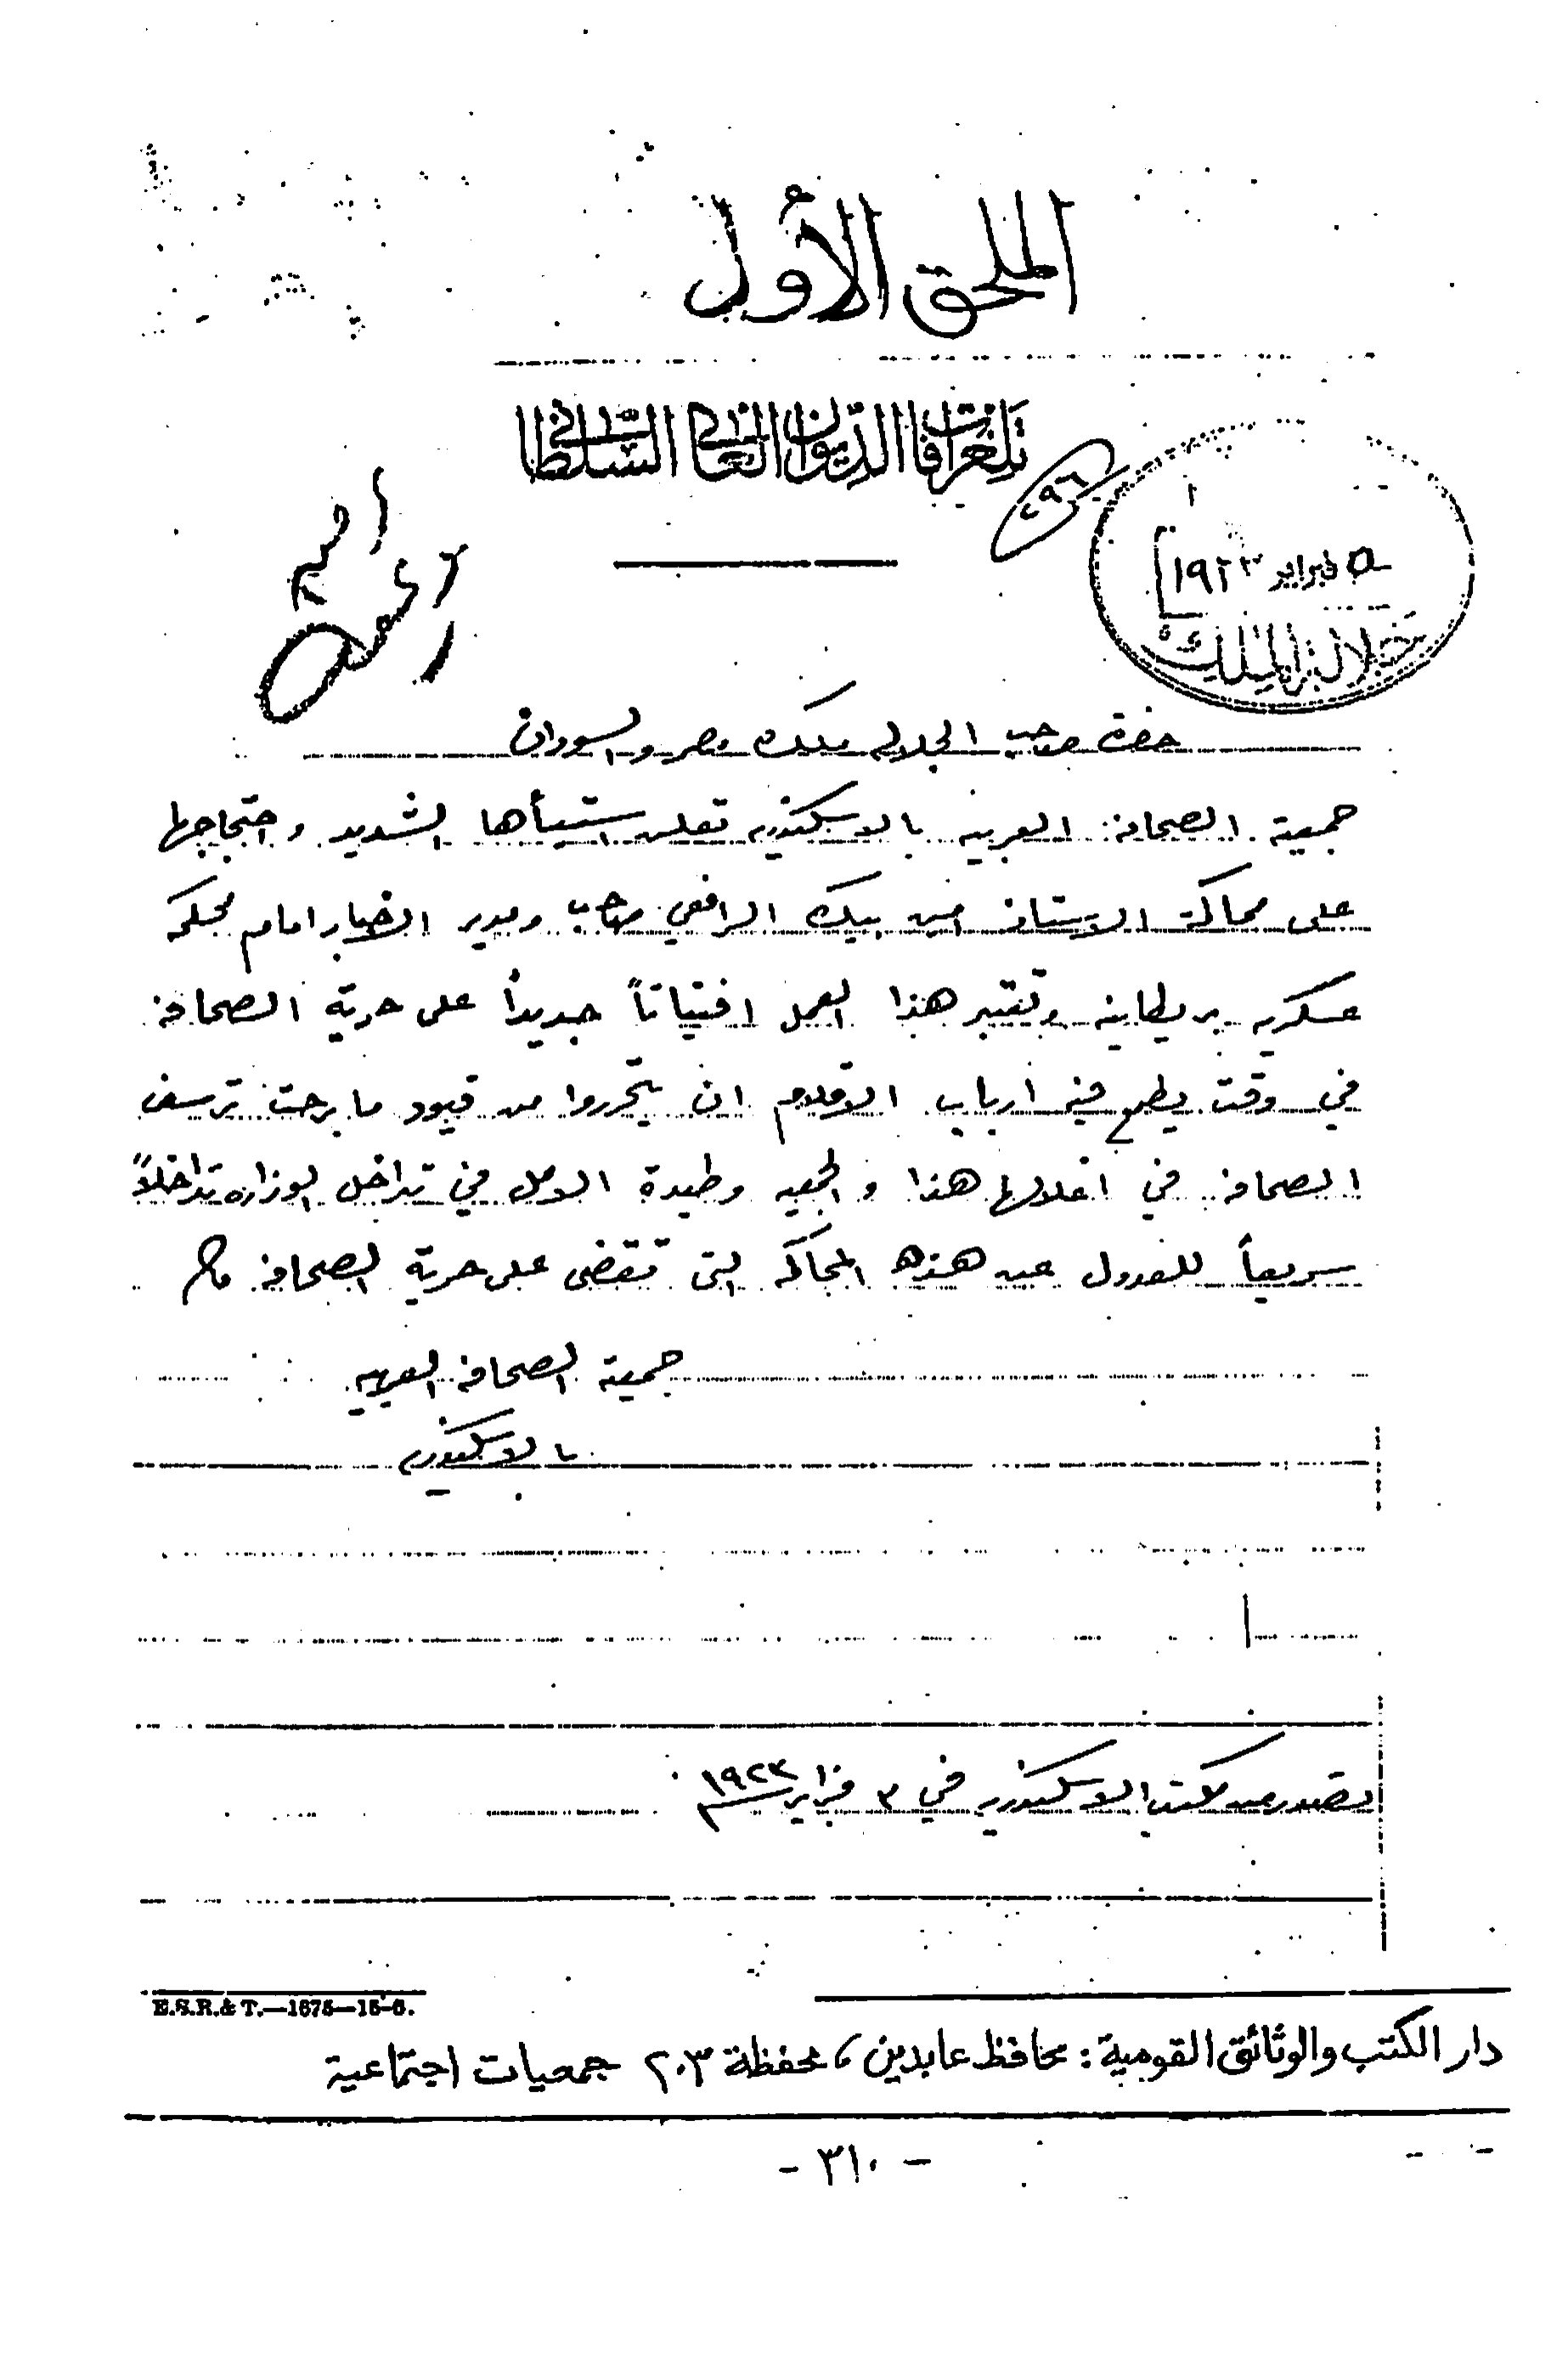 الملحق الأول
تلغرافات الديوان العالي السلطاني
٤٩٦
٥ فبراير ١٩٢٣
جلالة الملك
حضرة صاحب الجلاله ملك مصر والسودان
جمعية الصحافة العربية بالاسكندريه تعلن استيأها الشديد واحتجاجها
على محاكمة الاستاذ امين بيك الرافعي صاحب ومدير الاخبار امام محكمة
عسكريه بريطانية وتعتبر هذا العمل افتياتاً جديداً على حرية الصحافة
في وقت يطمع فيه ارباب الاقلام ان يتحرروا من قيود ما برحت ترسف
الصحافة في اغلالها هذا والجمعيه وطيدة الامل في تداخل الوزاره تداخلاً
سريعاً للعدول عن هذه المحاكمه التى تقضى على حرية الصحافة
جمعية الصحافة العربيه
بالاسكندريه
تصدر من مكتب الاسكندريه في ٣ فبراير ١٩٢٣
E.S.R.& T.—1675—15-6.
دار الكتب والوثائق القومية : محافظ عابدين ، محفظة ٢٠٣ جمعيات اجتماعية
- ٣١٠ -